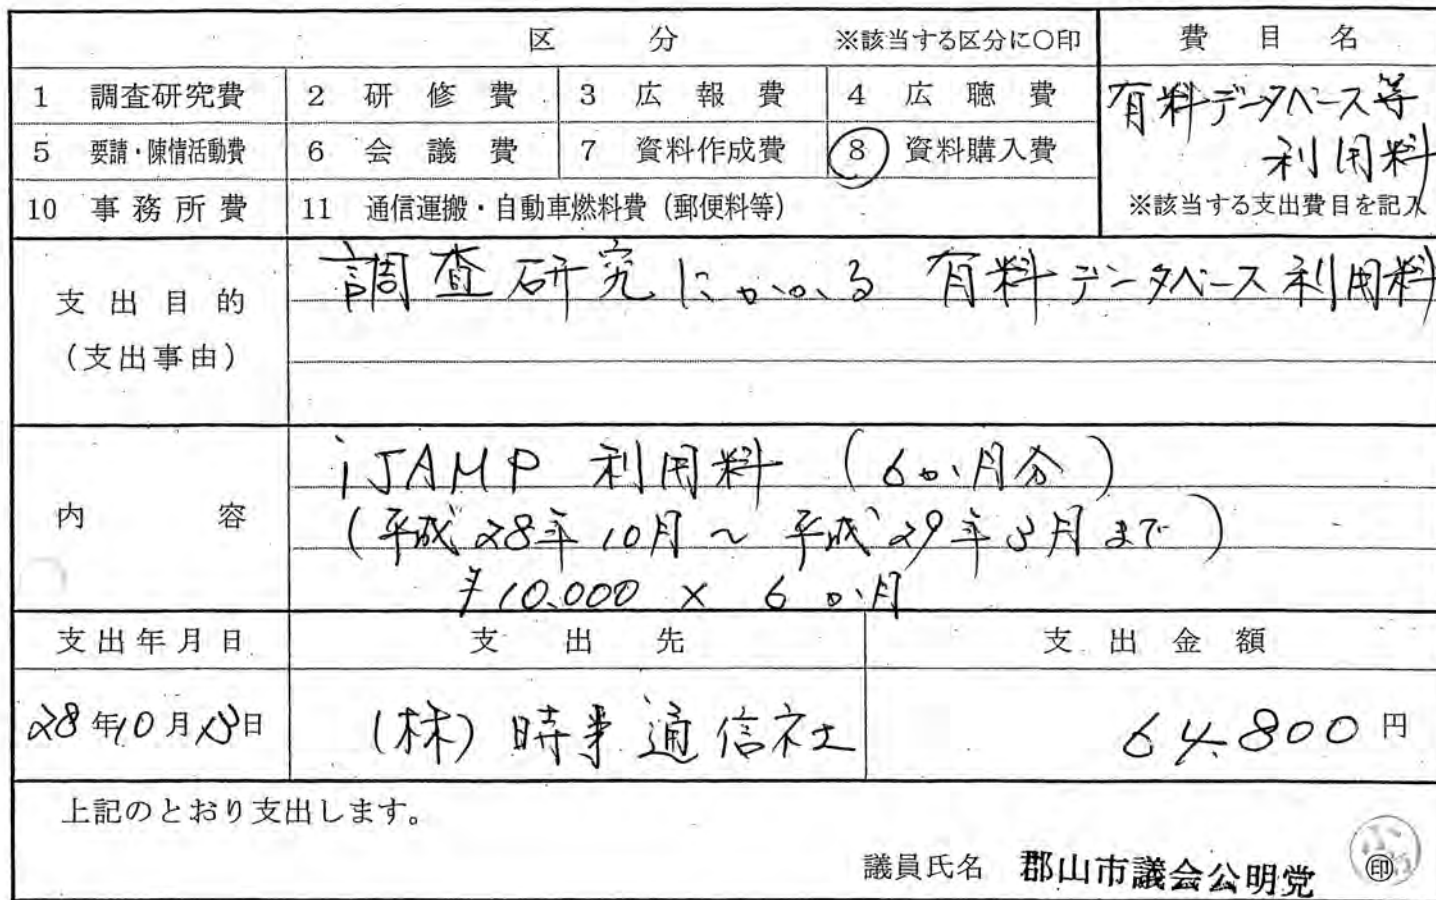 区 分 ※該当する区分に○印 費 目 名
1 調査研究費 2 研 修 費 3 広 報 費 4 広 聴 費 有料データベース等
5 要請・陳情活動費 6 会 議 費 7 資料作成費 8 資料購入費 利用料
10 事 務 所 費 11 通信運搬・自動車燃料費（郵便料等） ※該当する支出費目を記入
支 出 目 的 調査研究にかかる 有料データベース利用料
（支出事由）
iJAMP 利用料 (6か月分)
内 容 (平成28年10月～平成29年3月まで)
¥10.000 × 6か月
支出年月日 支 出 先 支 出 金 額
28年10月 日 (株) 時事通信社 64.800円
上記のとおり支出します。
議員氏名 郡山市議会公明党 印